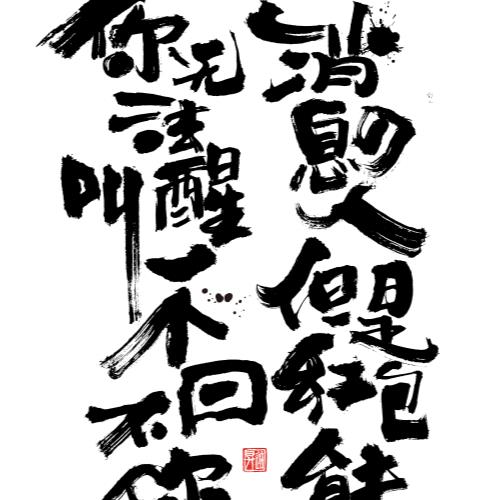 你无法叫醒一个不回你
消息的人但是红包能